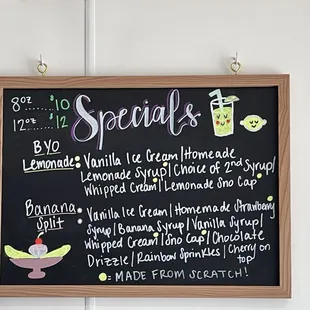 8oz $10
12oz $12
Specials
BYO
Lemonade: Vanilla Ice Cream/Homeade
Lemonade Syrup/Choice of 2nd Syrup/
Whipped Cream/Lemonade Sno Cap
Banana
Split: Vanilla Ice Cream/Homemade Strawberry
Syrup/Banana Syrup/Vanilla Syrup/
Whipped Cream/Sno Cap/Chocolate
Drizzle/Rainbow Sprinkles/Cherry on
top
= MADE FROM SCRATCH!